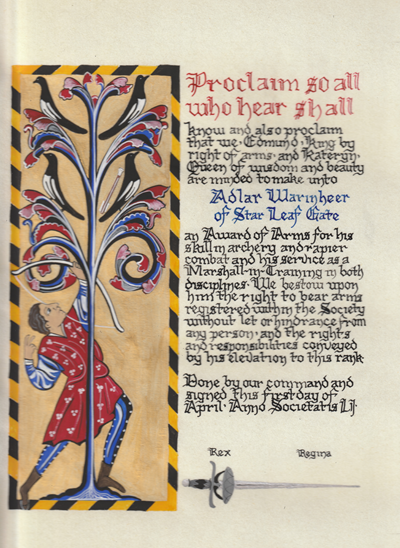 Proclaim so all
who hear shall
know and also proclaim
that we, Edmund, King by
right of arms, and Kateryn,
Queen of wisdom and beauty
are minded to make unto
Adlar Warinheer
of Star Leaf Gate
an Award of Arms for his
skill in archery and rapier
combat and his service as a
Marshall-in-Training in both
disciplines. We bestow upon
him the right to bear arms
registered within the Society
without let or hindrance from
any person, and the rights
and responsibilities conveyed
by his elevation to this rank.
Done by our command and
signed this first day of
April, Anno Societatis LI.
Rex Regina